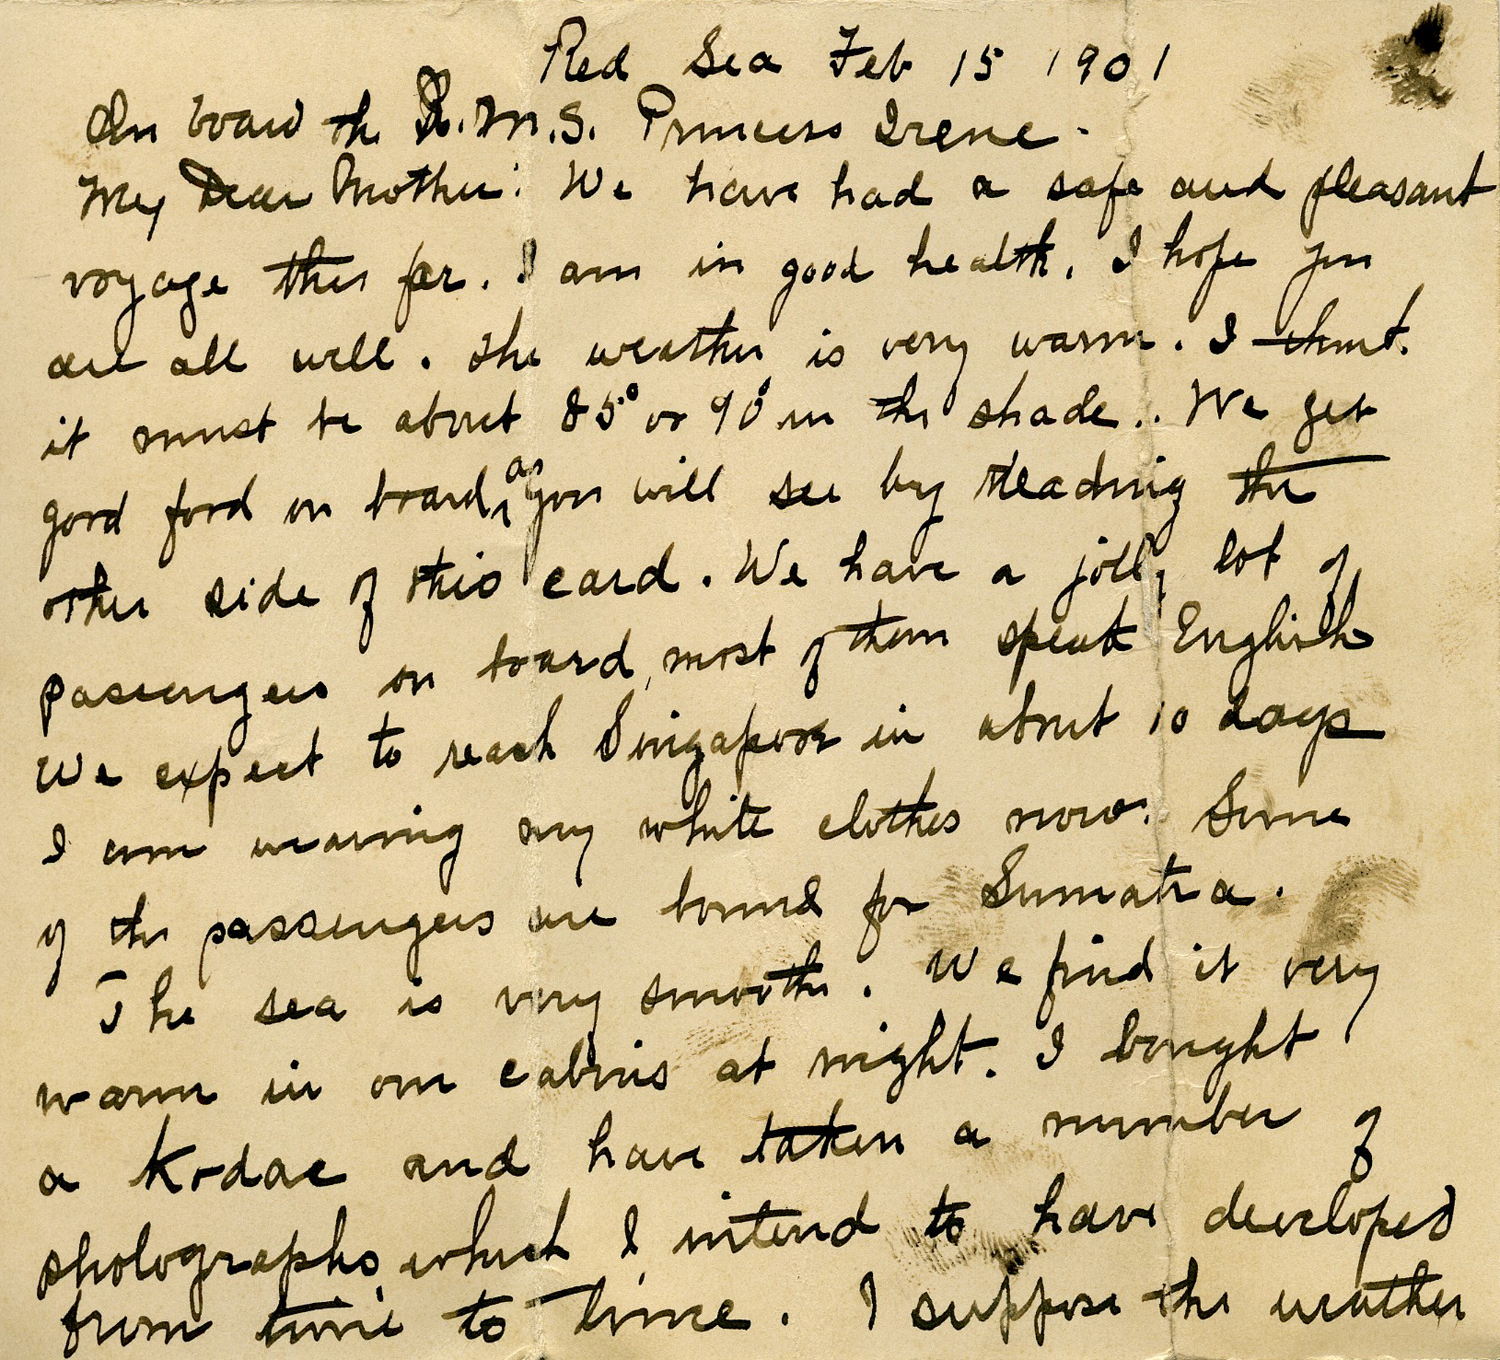 Red Sea Feb 15 1901
On board the R.M.S. Princess Irene.
My Dear Mother: We have had a safe and pleasant
voyage thus far. I am in good health. I hope you
are all well. The weather is very warm. I think
it must be about 85° or 90° in the shade.. We get
good food on board, as you will see by reading the
other side of this card. We have a jolly lot of
passengers on board, most of them speak English
We expect to reach Singapore in about 10 days
I am wearing my white clothes now. Some
of the passengers are bound for Sumatra.
The sea is very smooth. We find it very
warm in our cabins at night. I bought
a Kodac and have taken a number of
photographs which I intend to have developed
from time to time. I suppose the weather